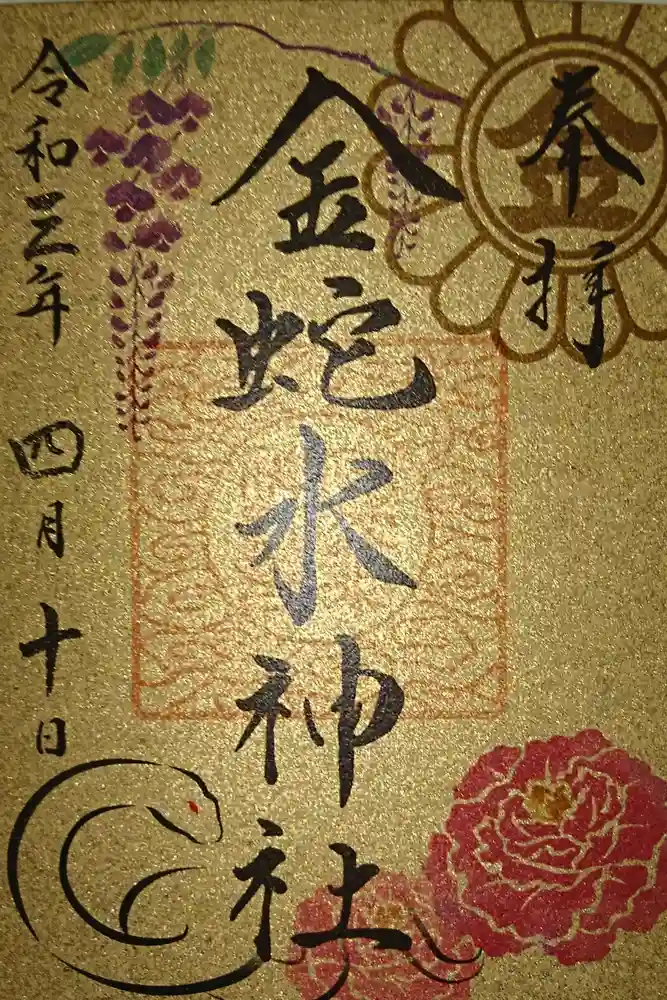 奉拝
金蛇水神社
令和三年 四月十日